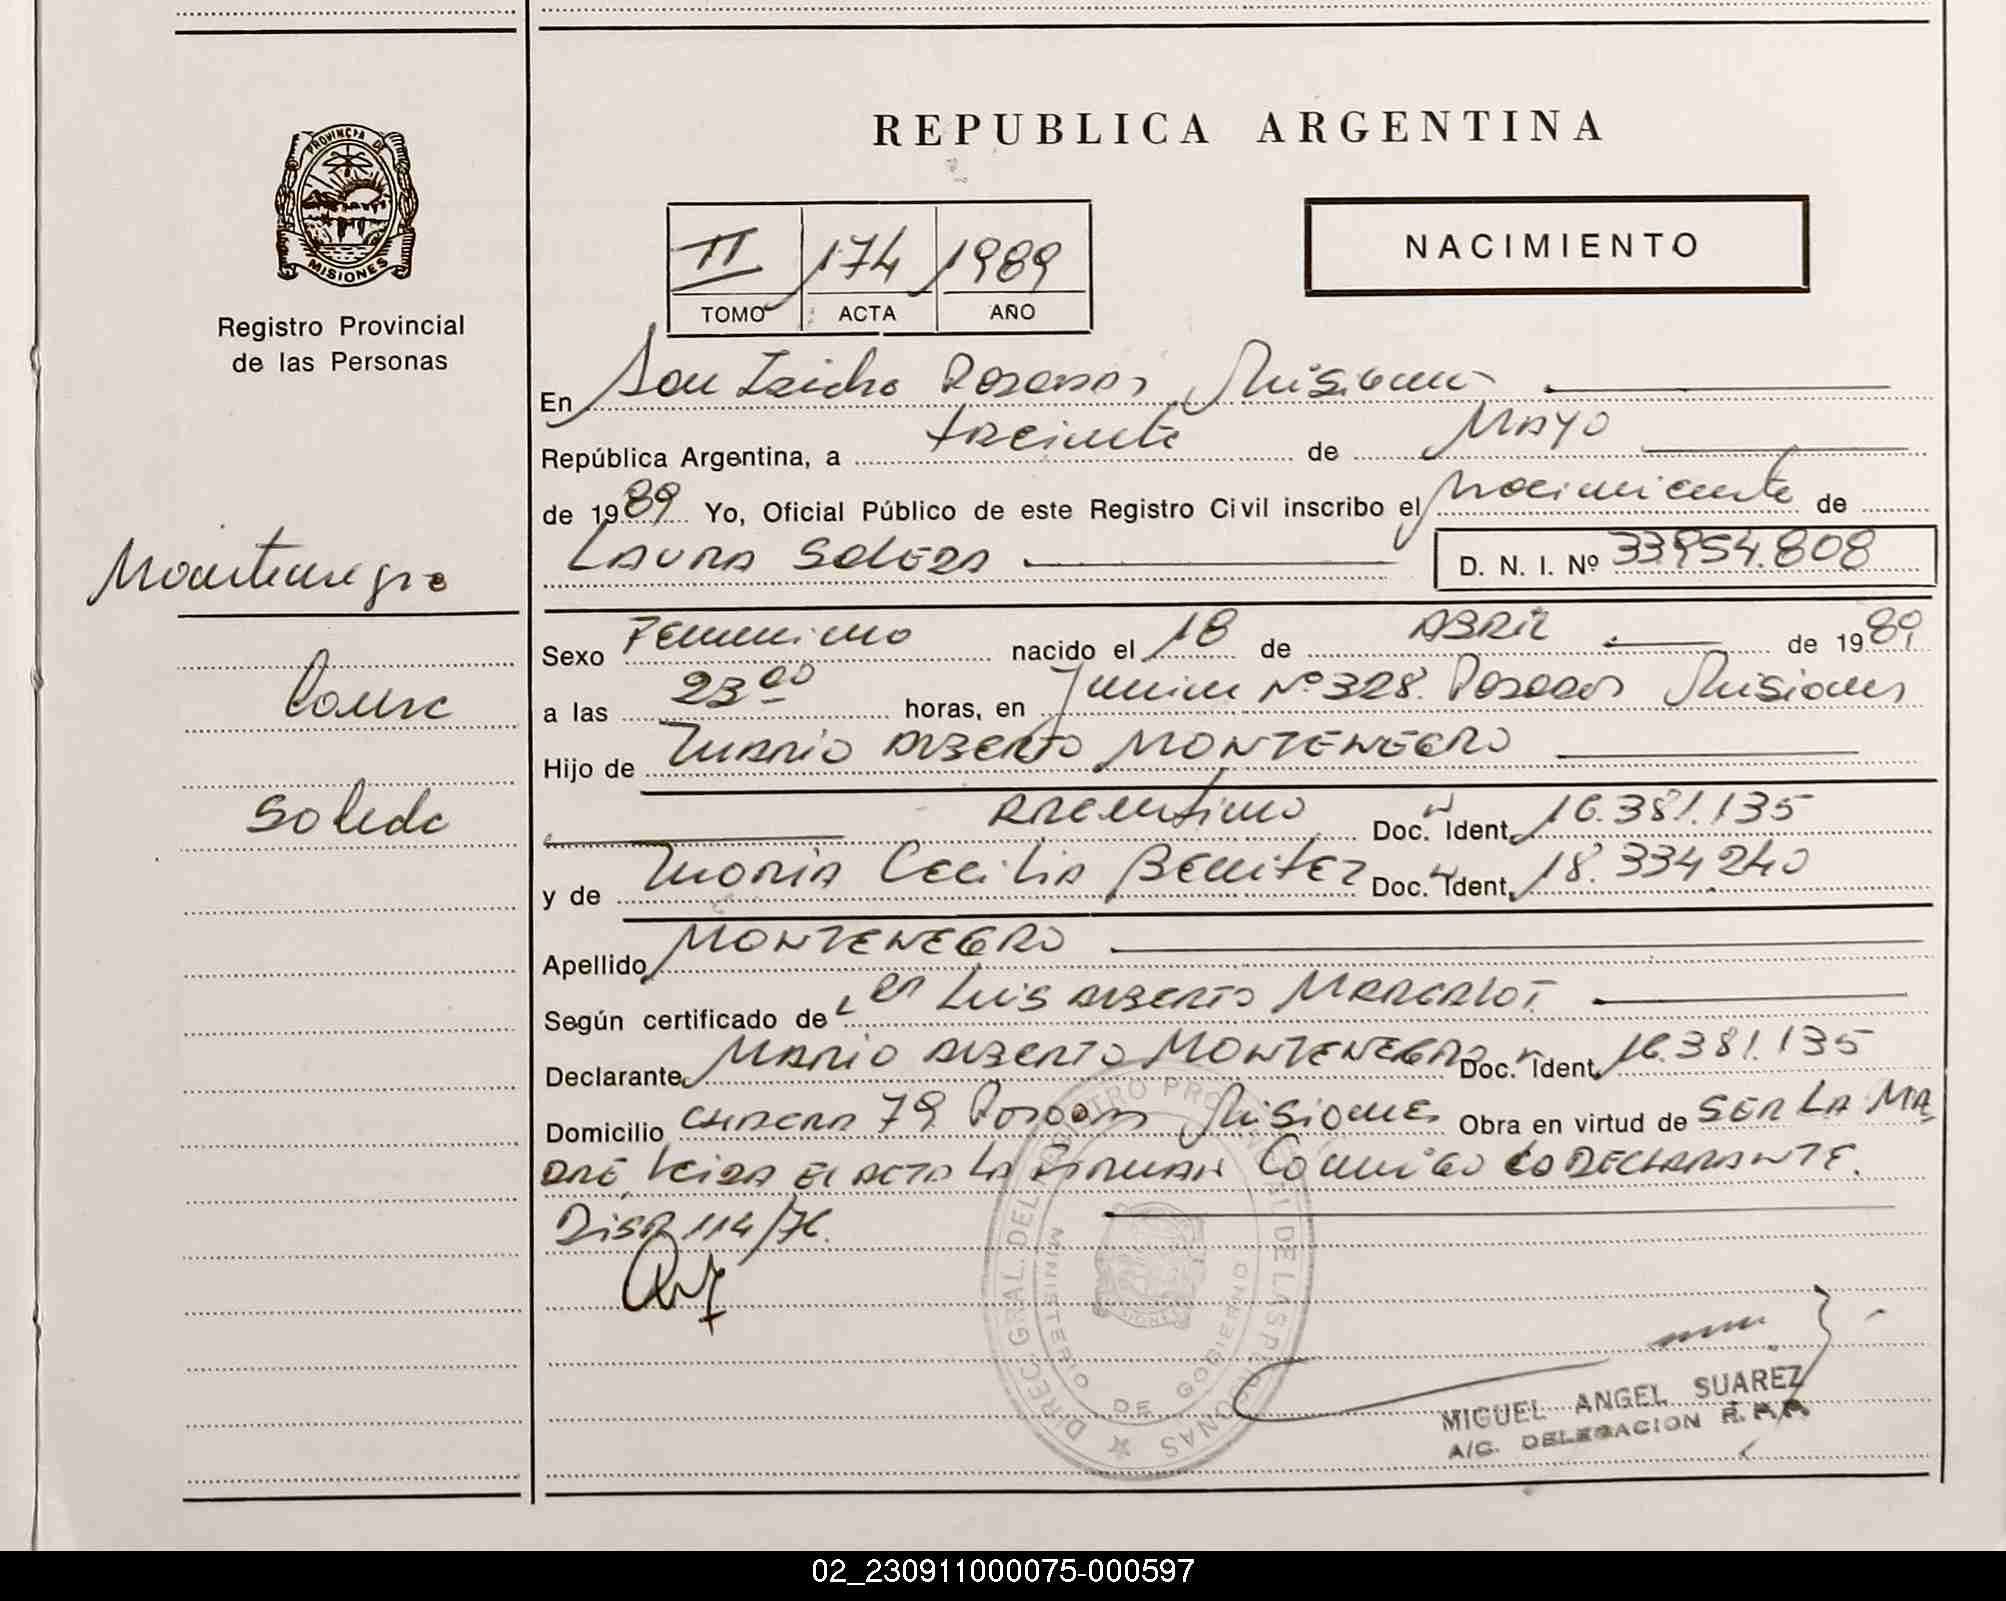 REPUBLICA ARGENTINA
PROVINCIA DE
MISIONES
Registro Provincial
de las Personas
II 174 1989
TOMO ACTA AÑO
NACIMIENTO
En San Isidro Posadas Misiones
República Argentina, a treinta de MAYO
de 1989 Yo, Oficial Público de este Registro Civil inscribo el Nacimiento de
LAURA SOLEDA D. N. I. Nº 33.954.808
Montenegro
Laura
Soleda
Sexo Femenino nacido el 18 de ABRIL de 1989
a las 23 00 horas, en Junin Nº 328. Posadas Misiones
Hijo de MARIO ALBERTO MONTENEGRO
ARGENTINO Doc. Ident. 16.381.135
y de MARIA Cecilia Benitez Doc. Ident. 18.334240
Apellido MONTENEGRO
Según certificado de Luis ALBERTO MARGALOT.
Declarante MARIO ALBERTO MONTENEGRO Doc. Ident. 16.381.135
Domicilio CHACRA 79 Posadas MISIONES Obra en virtud de SER LA MA
DRE, LEIDA EL ACTA LA FIRMAN Conmigo DECLARANTE.
DISP. 114/76.
DIREC. GRAL. DEL REGISTRO PROVINCIAL DE LAS PERSONAS
MINISTERIO DE GOBIERNO
MIGUEL ANGEL SUAREZ
A/C. DELEGACION R.P.P.
02_230911000075-000597